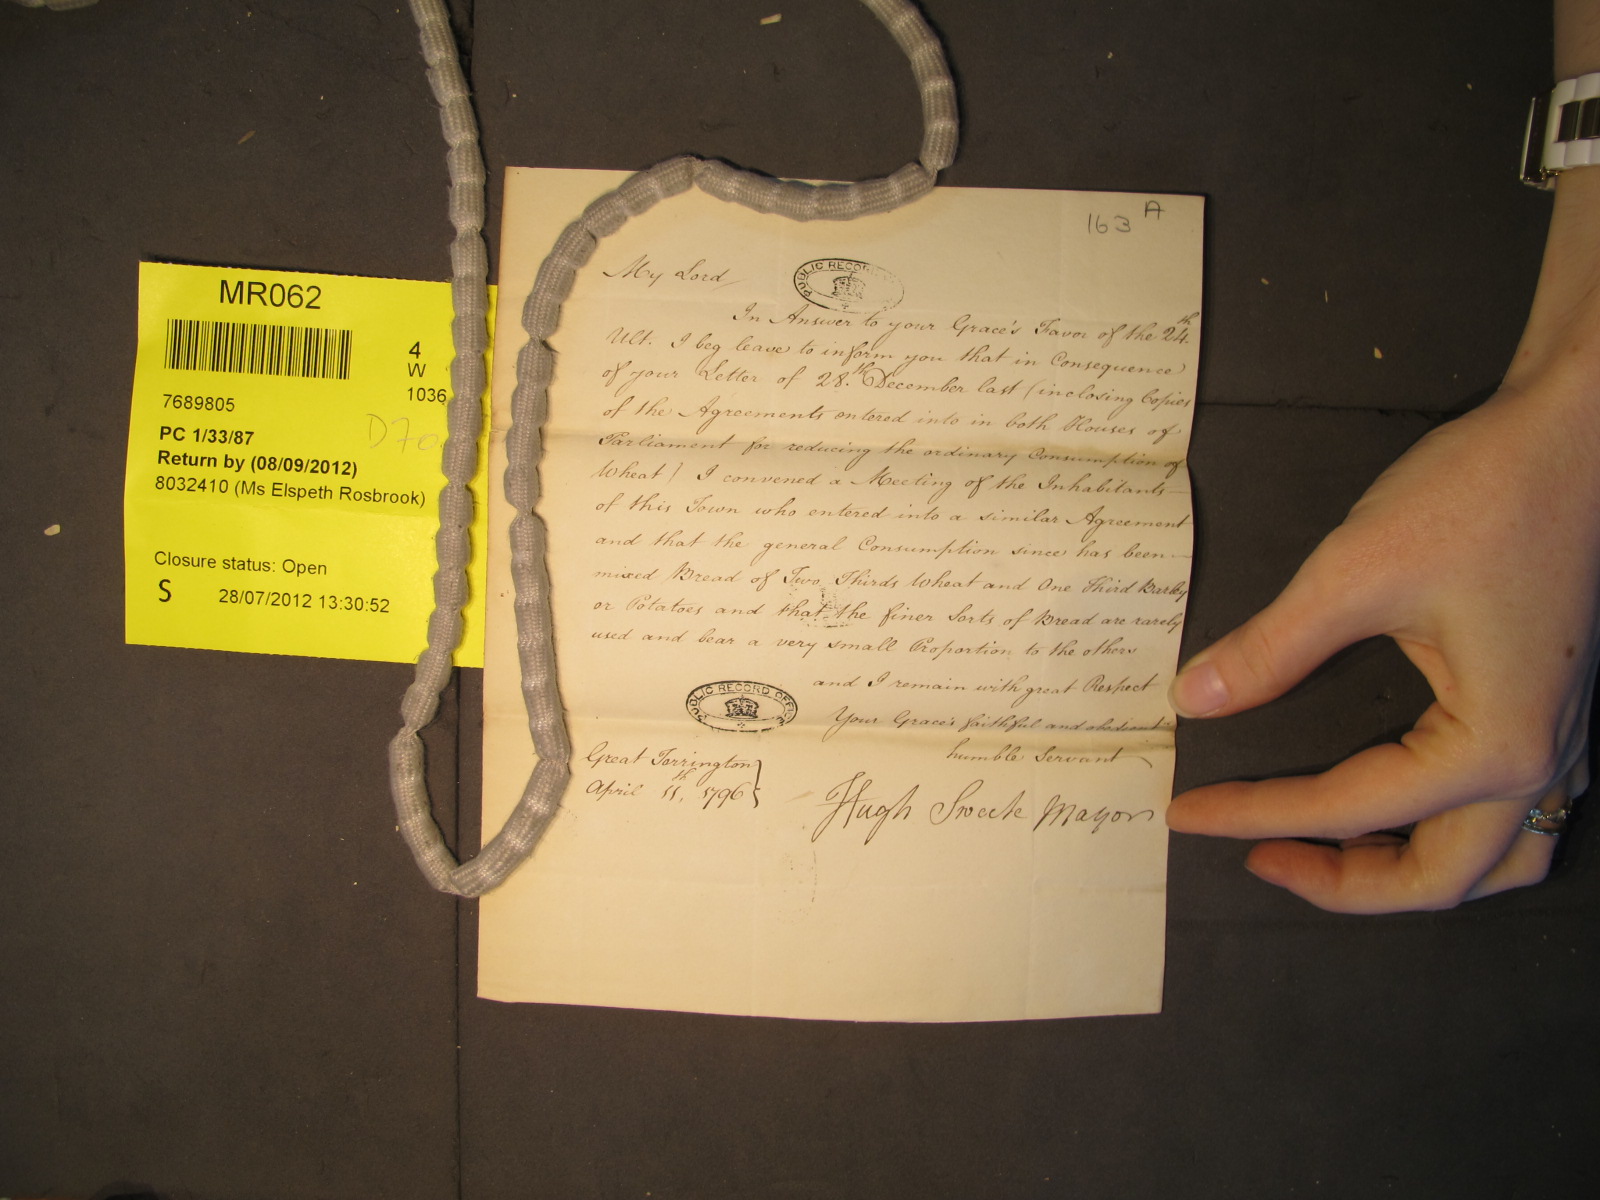 MR062
4
W
1036
7689805
D70
PC 1/33/87
Return by (08/09/2012)
8032410 (Ms Elspeth Rosbrook)
Closure status: Open
S 28/07/2012 13:30:52
163 A
My Lord
PUBLIC RECORD
In Answer to your Grace's Favor of the 24th
Ult. I beg leave to inform you that in Consequence
of your Letter of 28th December last (inclosing Copies
of the Agreements entered into in both Houses of
Parliament for reducing the ordinary Consumption of
Wheat) I convened a Meeting of the Inhabitants
of this Town who entered into a similar Agreement
and that the general Consumption since has been
mixed Bread of Two Thirds Wheat and One Third Barley
or Potatoes and that the finer Sorts of Bread are rarely
used and bear a very small Proportion to the others
and I remain with great Respect
PUBLIC RECORD OFFICE
Your Grace's faithful and obedient
humble Servant
Great Torrington
April 11th, 1796
Hugh Sweete Mayor